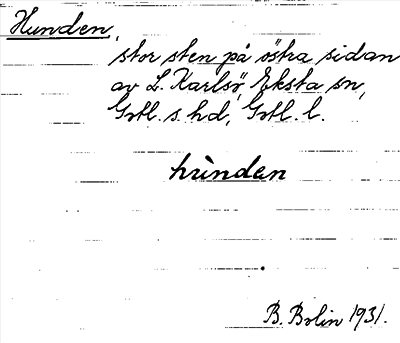 Hunden,
stor sten på östra sidan
av L. Karlsö, Eksta sn,
Gtl. s. hd, Gtl. l.
hùndan
B. Bolin 1931.